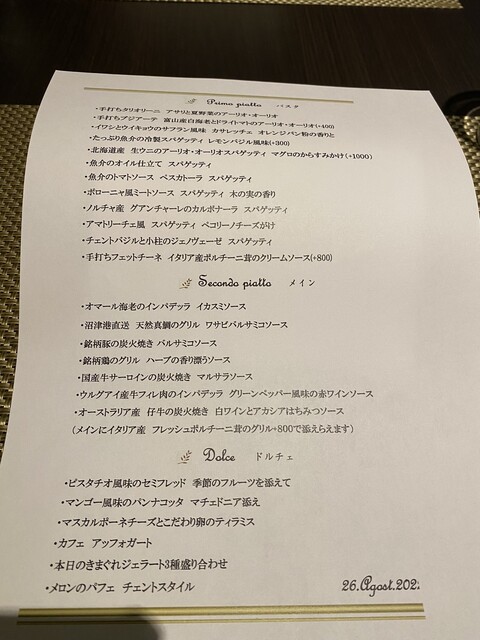 Primo piatto パスタ
・手打ちタリオリーニ アサリと夏野菜のアーリオ・オーリオ
・手打ちアジアーテ 富山産白海老とドライトマトのアーリオ・オーリオ(+400)
・イワシとウイキョウのサフラン風味 カサレッチェ オレンジパン粉の香りと
・たっぷり魚介の冷製スパゲッティ レモンバジル風味(+300)
・北海道産 生ウニのアーリオ・オーリオスパゲッティ マグロのからすみかけ(+1000)
・魚介のオイル仕立て スパゲッティ
・魚介のトマトソース ペスカトーラ スパゲッティ
・ボローニャ風ミートソース スパゲッティ 木の実の香り
・ノルチャ産 グアンチャーレのカルボナーラ スパゲッティ
・アマトリーチェ風 スパゲッティ ペコリーノチーズがけ
・チェントバジルと小柱のジェノヴェーゼ スパゲッティ
・手打ちフェットチーネ イタリア産ポルチーニ茸のクリームソース(+800)
Secondo piatto メイン
・オマール海老のインパデッラ イカスミソース
・沼津港直送 天然真鯛のグリル ワサビバルサミコソース
・銘柄豚の炭火焼き バルサミコソース
・銘柄鶏のグリル ハーブの香り漂うソース
・国産牛サーロインの炭火焼き マルサラソース
・ウルグアイ産牛フィレ肉のインパデッラ グリーンペッパー風味の赤ワインソース
・オーストラリア産 仔牛の炭火焼き 白ワインとアカシアはちみつソース
(メインにイタリア産 フレッシュポルチーニ茸のグリル+800で添えらえます)
Dolce ドルチェ
・ピスタチオ風味のセミフレッド 季節のフルーツを添えて
・マンゴー風味のパンナコッタ マチェドニア添え
・マスカルポーネチーズとこだわり卵のティラミス
・カフェ アッフォガート
・本日のきまぐれジェラート3種盛り合わせ
・メロンのパフェ チェントスタイル
26.Agost.202